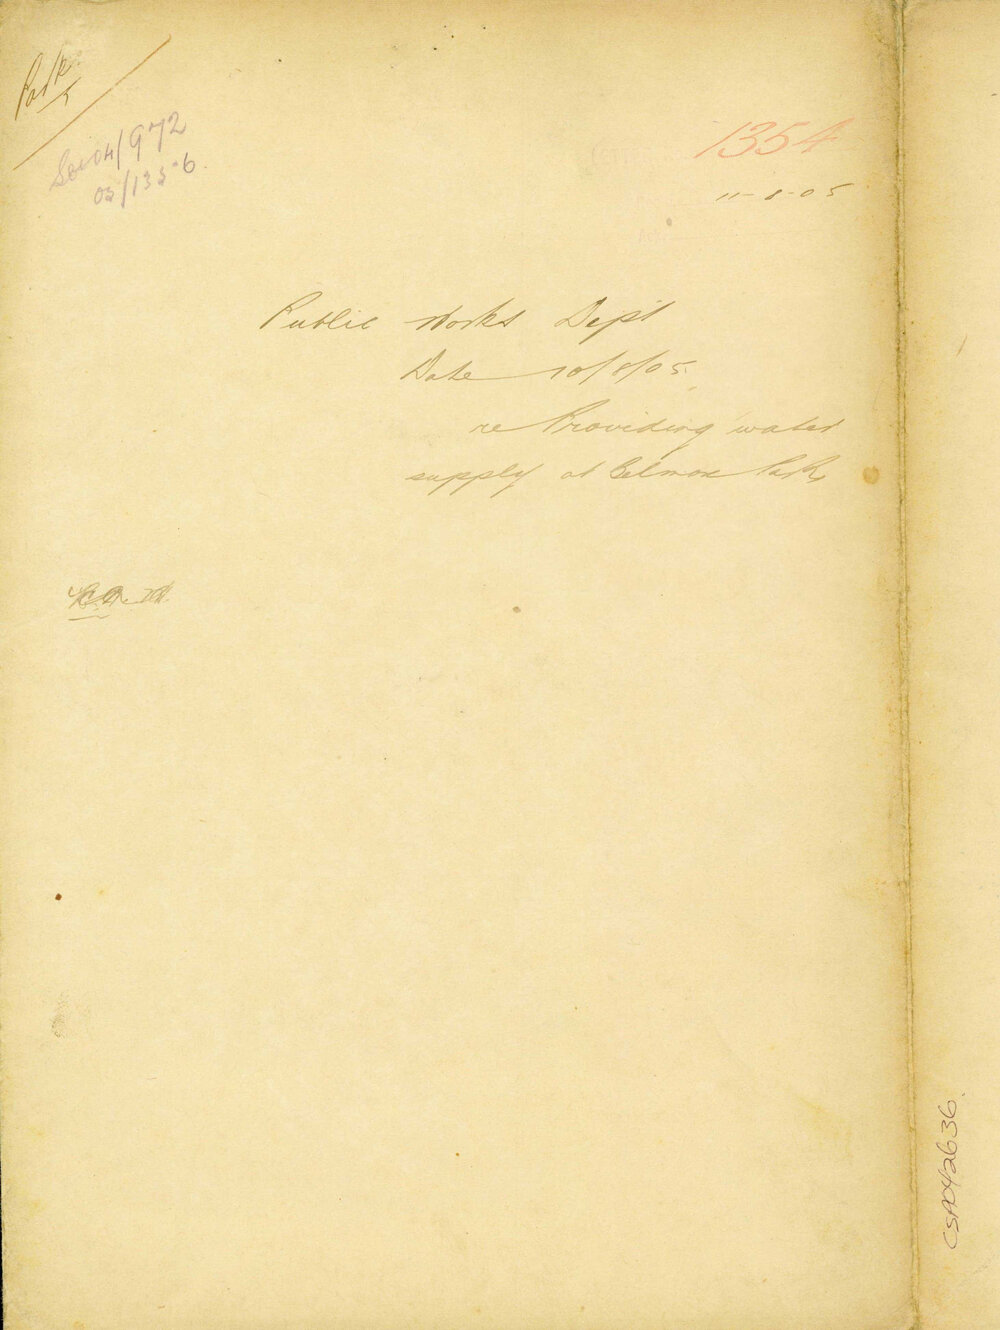 Park
See 04/972
05/1356.
1354
11-8-05
Public Works Dept
Date 10/8/05
re Providing water
supply at Belmore Park
CSA042636.